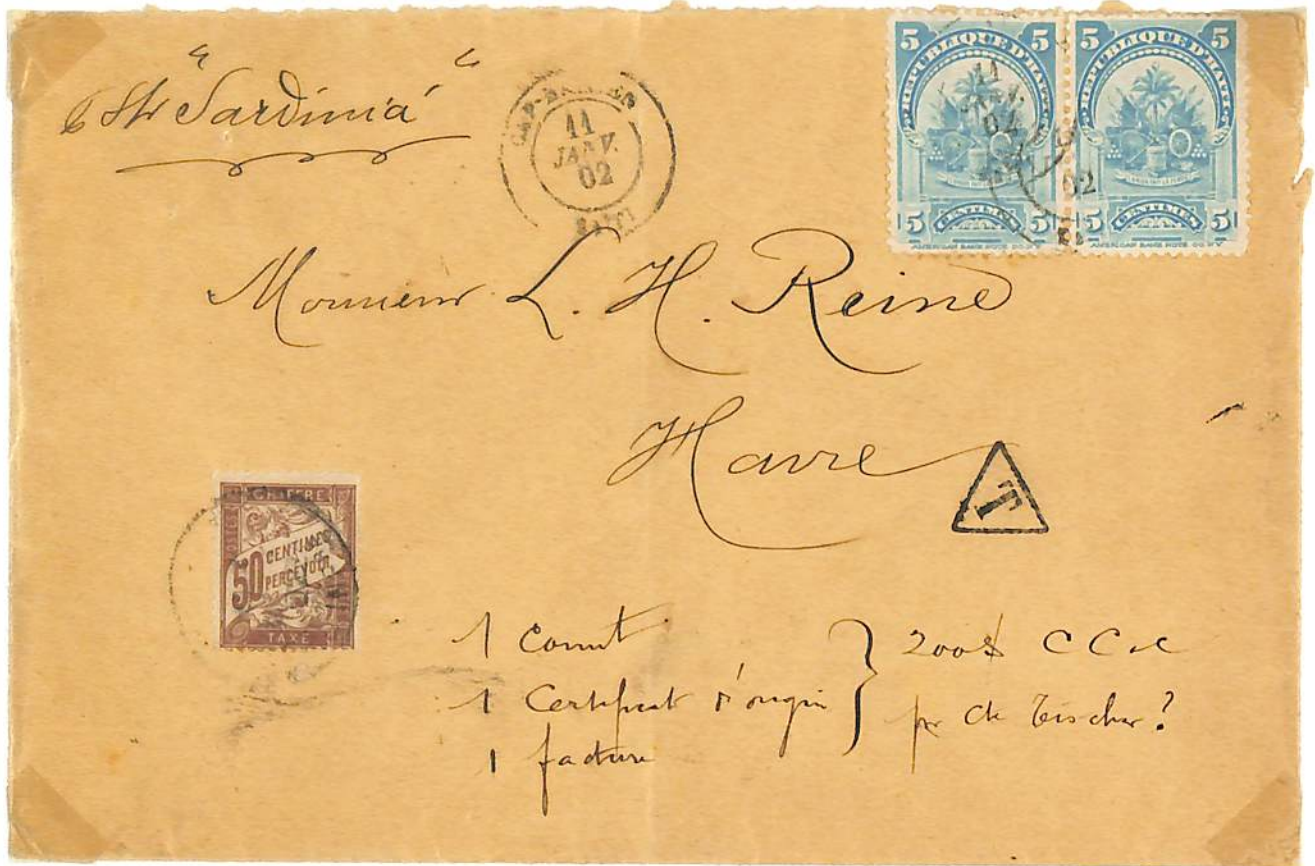 p Str "Sardinia"
CAP-HAITIEN
11
JANV.
02
HAITI
5 5
REPUBLIQUE D'HAITI
5 CENTIMES 5
AMERICAN BANK NOTE CO. N.Y.
5 5
REPUBLIQUE D'HAITI
5 CENTIMES 5
AMERICAN BANK NOTE CO. N.Y.
11
02
02
Monsieur L. H. Reine
Havre
T
CHIFFRE
50 CENTIMES
PERCEVOIR
TAXE
1 Connt
1 Certificat d'origin
1 facture
200$ C C
pr Ch Tischer?